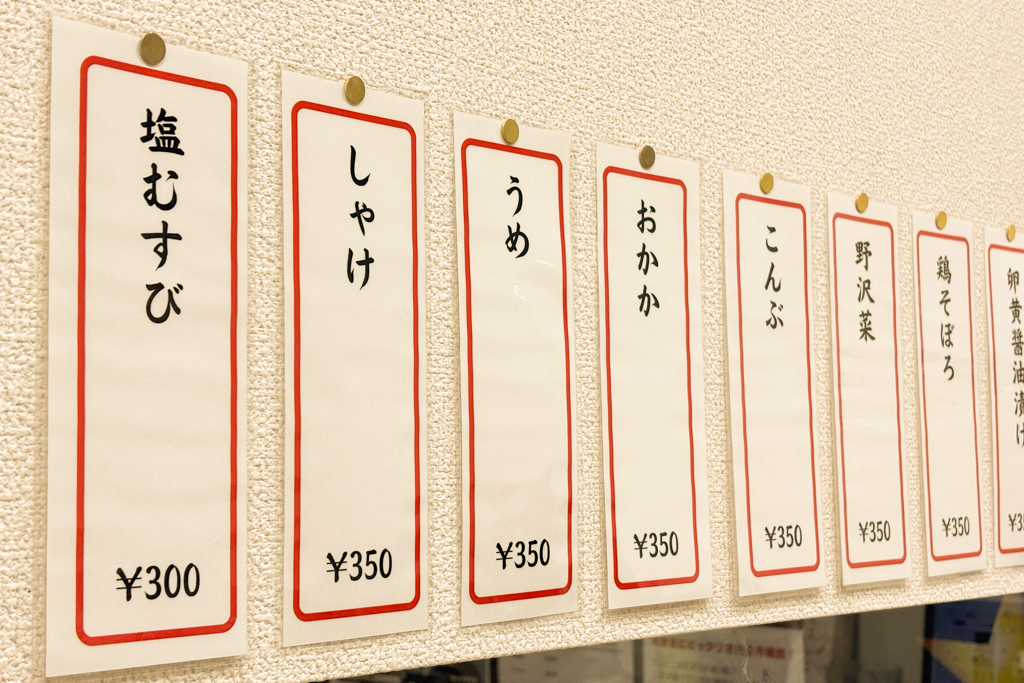 塩むすび
¥300
しゃけ
¥350
うめ
¥350
おかか
¥350
こんぶ
¥350
野沢菜
¥350
鶏そぼろ
¥350
卵黄醤油漬け
¥3